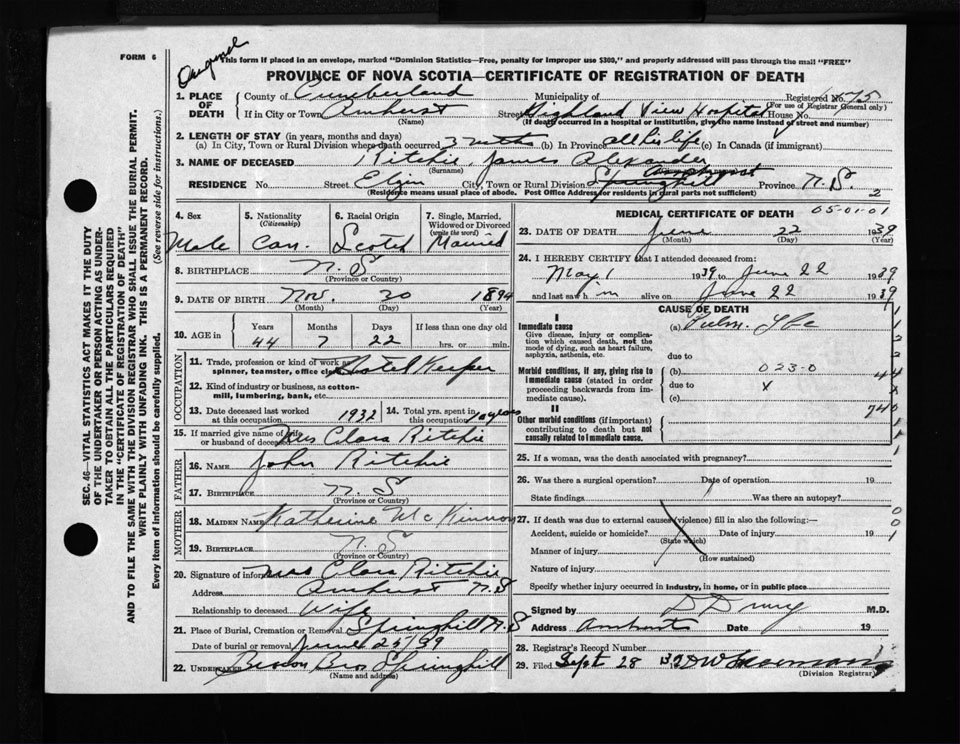 FORM 6
Original
This form if placed in an envelope, marked "Dominion Statistics—Free, penalty for improper use $300," and properly addressed will pass through the mail "FREE"
PROVINCE OF NOVA SCOTIA—CERTIFICATE OF REGISTRATION OF DEATH
1. PLACE OF DEATH County of Cumberland Municipality of Registered No. 75
(For use of Registrar General only)
If in City or Town Amherst Street Highland View Hospital House No.
(Name) (If death occurred in a hospital or institution, give the name instead of street and number)
2. LENGTH OF STAY (in years, months and days)
(a) In City, Town or Rural Division where death occurred 3 mths (b) In Province all his life (c) In Canada (if immigrant)
3. NAME OF DECEASED Ritchie, James Alexander
(Surname)
RESIDENCE No. Street Elgin City, Town or Rural Division Springhill Province N.S. 2
(Residence means usual place of abode. Post Office Address for residents in rural parts not sufficient)
4. Sex Male
5. Nationality (Citizenship) Can.
6. Racial Origin Scotch
7. Single, Married, Widowed or Divorced (write the word) Married
8. BIRTHPLACE N.S
(Province or Country)
9. DATE OF BIRTH Nov. 30 1894
(Month) (Day) (Year)
10. AGE in Years 44 Months 7 Days 22 If less than one day old hrs. or min.
OCCUPATION
11. Trade, profession or kind of work as spinner, teamster, office clerk Hotel Keeper
12. Kind of industry or business, as cotton-mill, lumbering, bank, etc.
13. Date deceased last worked at this occupation 1932
14. Total yrs. spent in this occupation 10 years
15. If married give name of wife or husband of deceased Mrs Clara Ritchie
FATHER
16. NAME John Ritchie
17. BIRTHPLACE N.S
(Province or Country)
MOTHER
18. MAIDEN NAME Katherine McKinnon
19. BIRTHPLACE N.S
(Province or Country)
20. Signature of informant Mrs Clara Ritchie
Address Amherst N.S
Relationship to deceased Wife
21. Place of Burial, Cremation or Removal Springhill N.S
Date of burial or removal June 25/39
22. UNDERTAKER Bros Springhill
(Name and address)
MEDICAL CERTIFICATE OF DEATH 05-01-01
23. DATE OF DEATH June 22 1939
(Month) (Day) (Year)
24. I HEREBY CERTIFY that I attended deceased from:
May 1 1939 to June 22 1939
and last saw him alive on June 22 1939
CAUSE OF DEATH
I
Immediate cause (a) Pulm. Tbc
Give disease, injury or complication which caused death, not the mode of dying, such as heart failure, asphyxia, asthenia, etc.
due to
Morbid conditions, if any, giving rise to immediate cause (stated in order proceeding backwards from immediate cause). (b) 023-0
due to X
(c)
II
Other morbid conditions (if important) contributing to death but not causally related to immediate cause.
44
X
740
25. If a woman, was the death associated with pregnancy?
26. Was there a surgical operation? Date of operation 19
State findings Was there an autopsy?
27. If death was due to external causes (violence) fill in also the following:—
Accident, suicide or homicide? Date of injury 19
(State which)
Manner of injury
(How sustained)
Nature of injury
Specify whether injury occurred in industry, in home, or in public place
Signed by M.D.
Address Amherst Date 19
28. Registrar's Record Number
29. Filed Sept 28
(Division Registrar)
SEC. 46—VITAL STATISTICS ACT MAKES IT THE DUTY
OF THE UNDERTAKER OR PERSON ACTING AS UNDERTAKER TO OBTAIN ALL THE PARTICULARS REQUIRED
IN THE "CERTIFICATE OF REGISTRATION OF DEATH"
AND TO FILE THE SAME WITH THE DIVISION REGISTRAR WHO SHALL ISSUE THE BURIAL PERMIT.
WRITE PLAINLY WITH UNFADING INK. THIS IS A PERMANENT RECORD.
Every item of information should be carefully supplied. (See reverse side for instructions.)